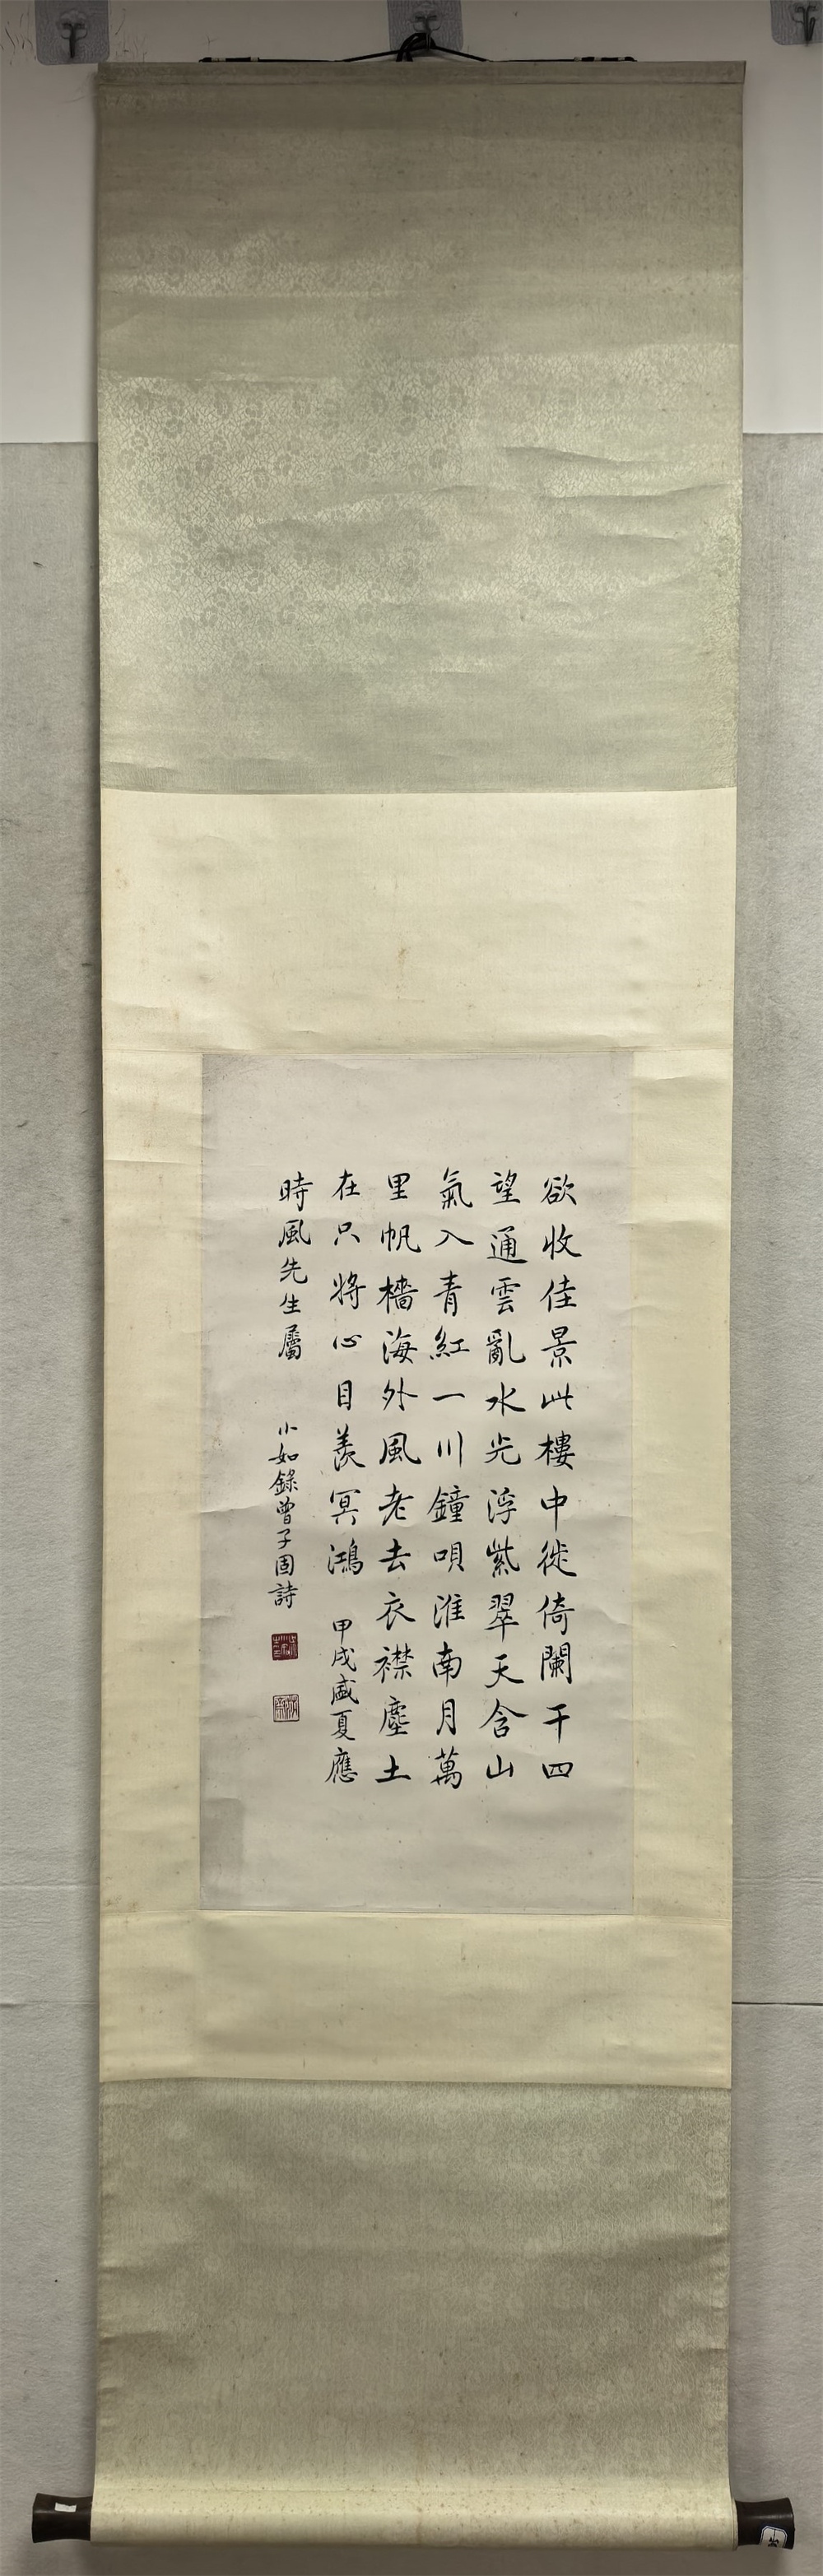 欲收佳景此樓中徙倚闌干四
望通雲亂水光浮紫翠天含山
氣入青紅一川鐘唄淮南月萬
里帆檣海外風老去衣襟塵土
在只將心目羨冥鴻 甲戌盛夏應
時風先生屬 小如錄曾子固詩